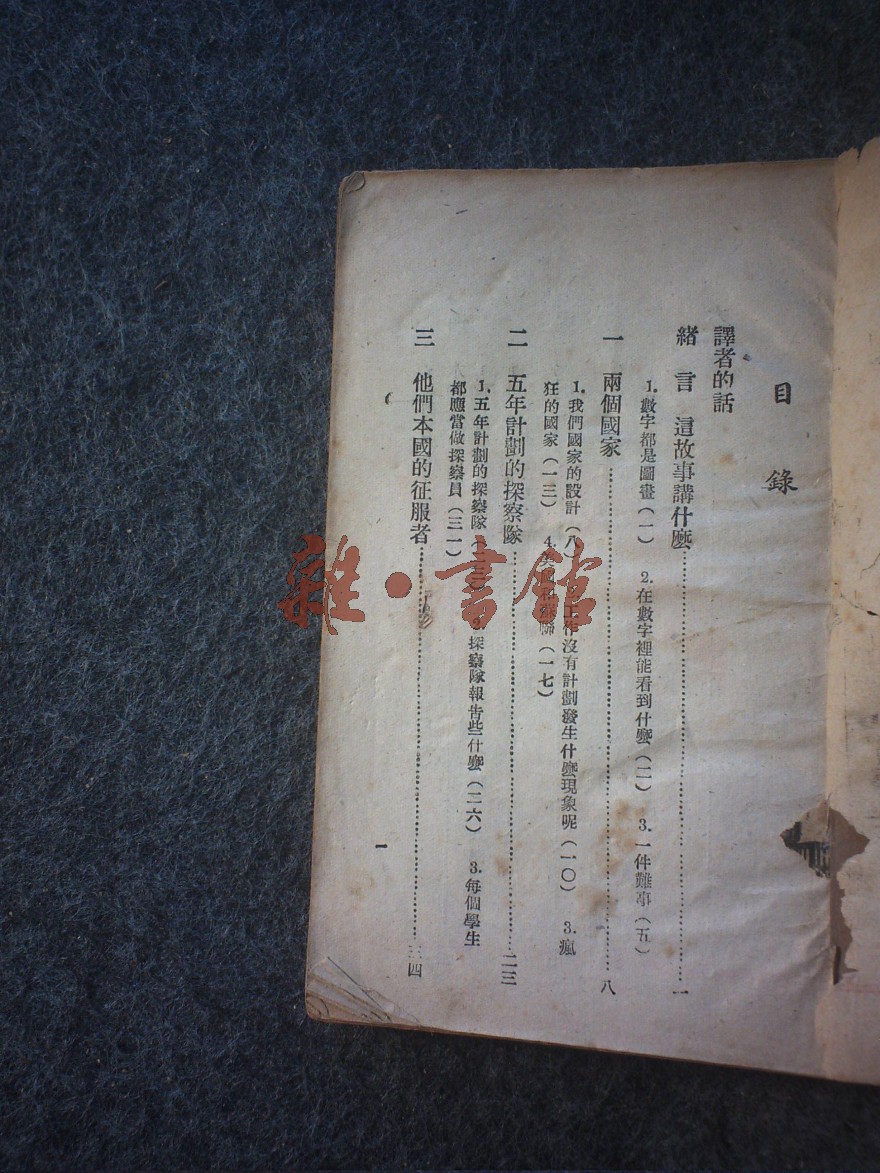 目錄
譯者的話
緒言 這故事講什麼……一
1.數字都是圖畫(一) 2.在數字裡能看到什麼(二) 3.一件難事(五)
一 兩個國家……八
1.我們國家的設計(八) 工作沒有計劃發生什麼現象呢(一〇) 3.瘋
狂的國家(一三) 4. (一七)
二 五年計劃的探察隊……二三
1.五年計劃的探察隊 探察隊報告些什麼(二六) 3.每個學生
都應當做探察員(三一)
三 他們本國的征服者……三四
一
雜·書館